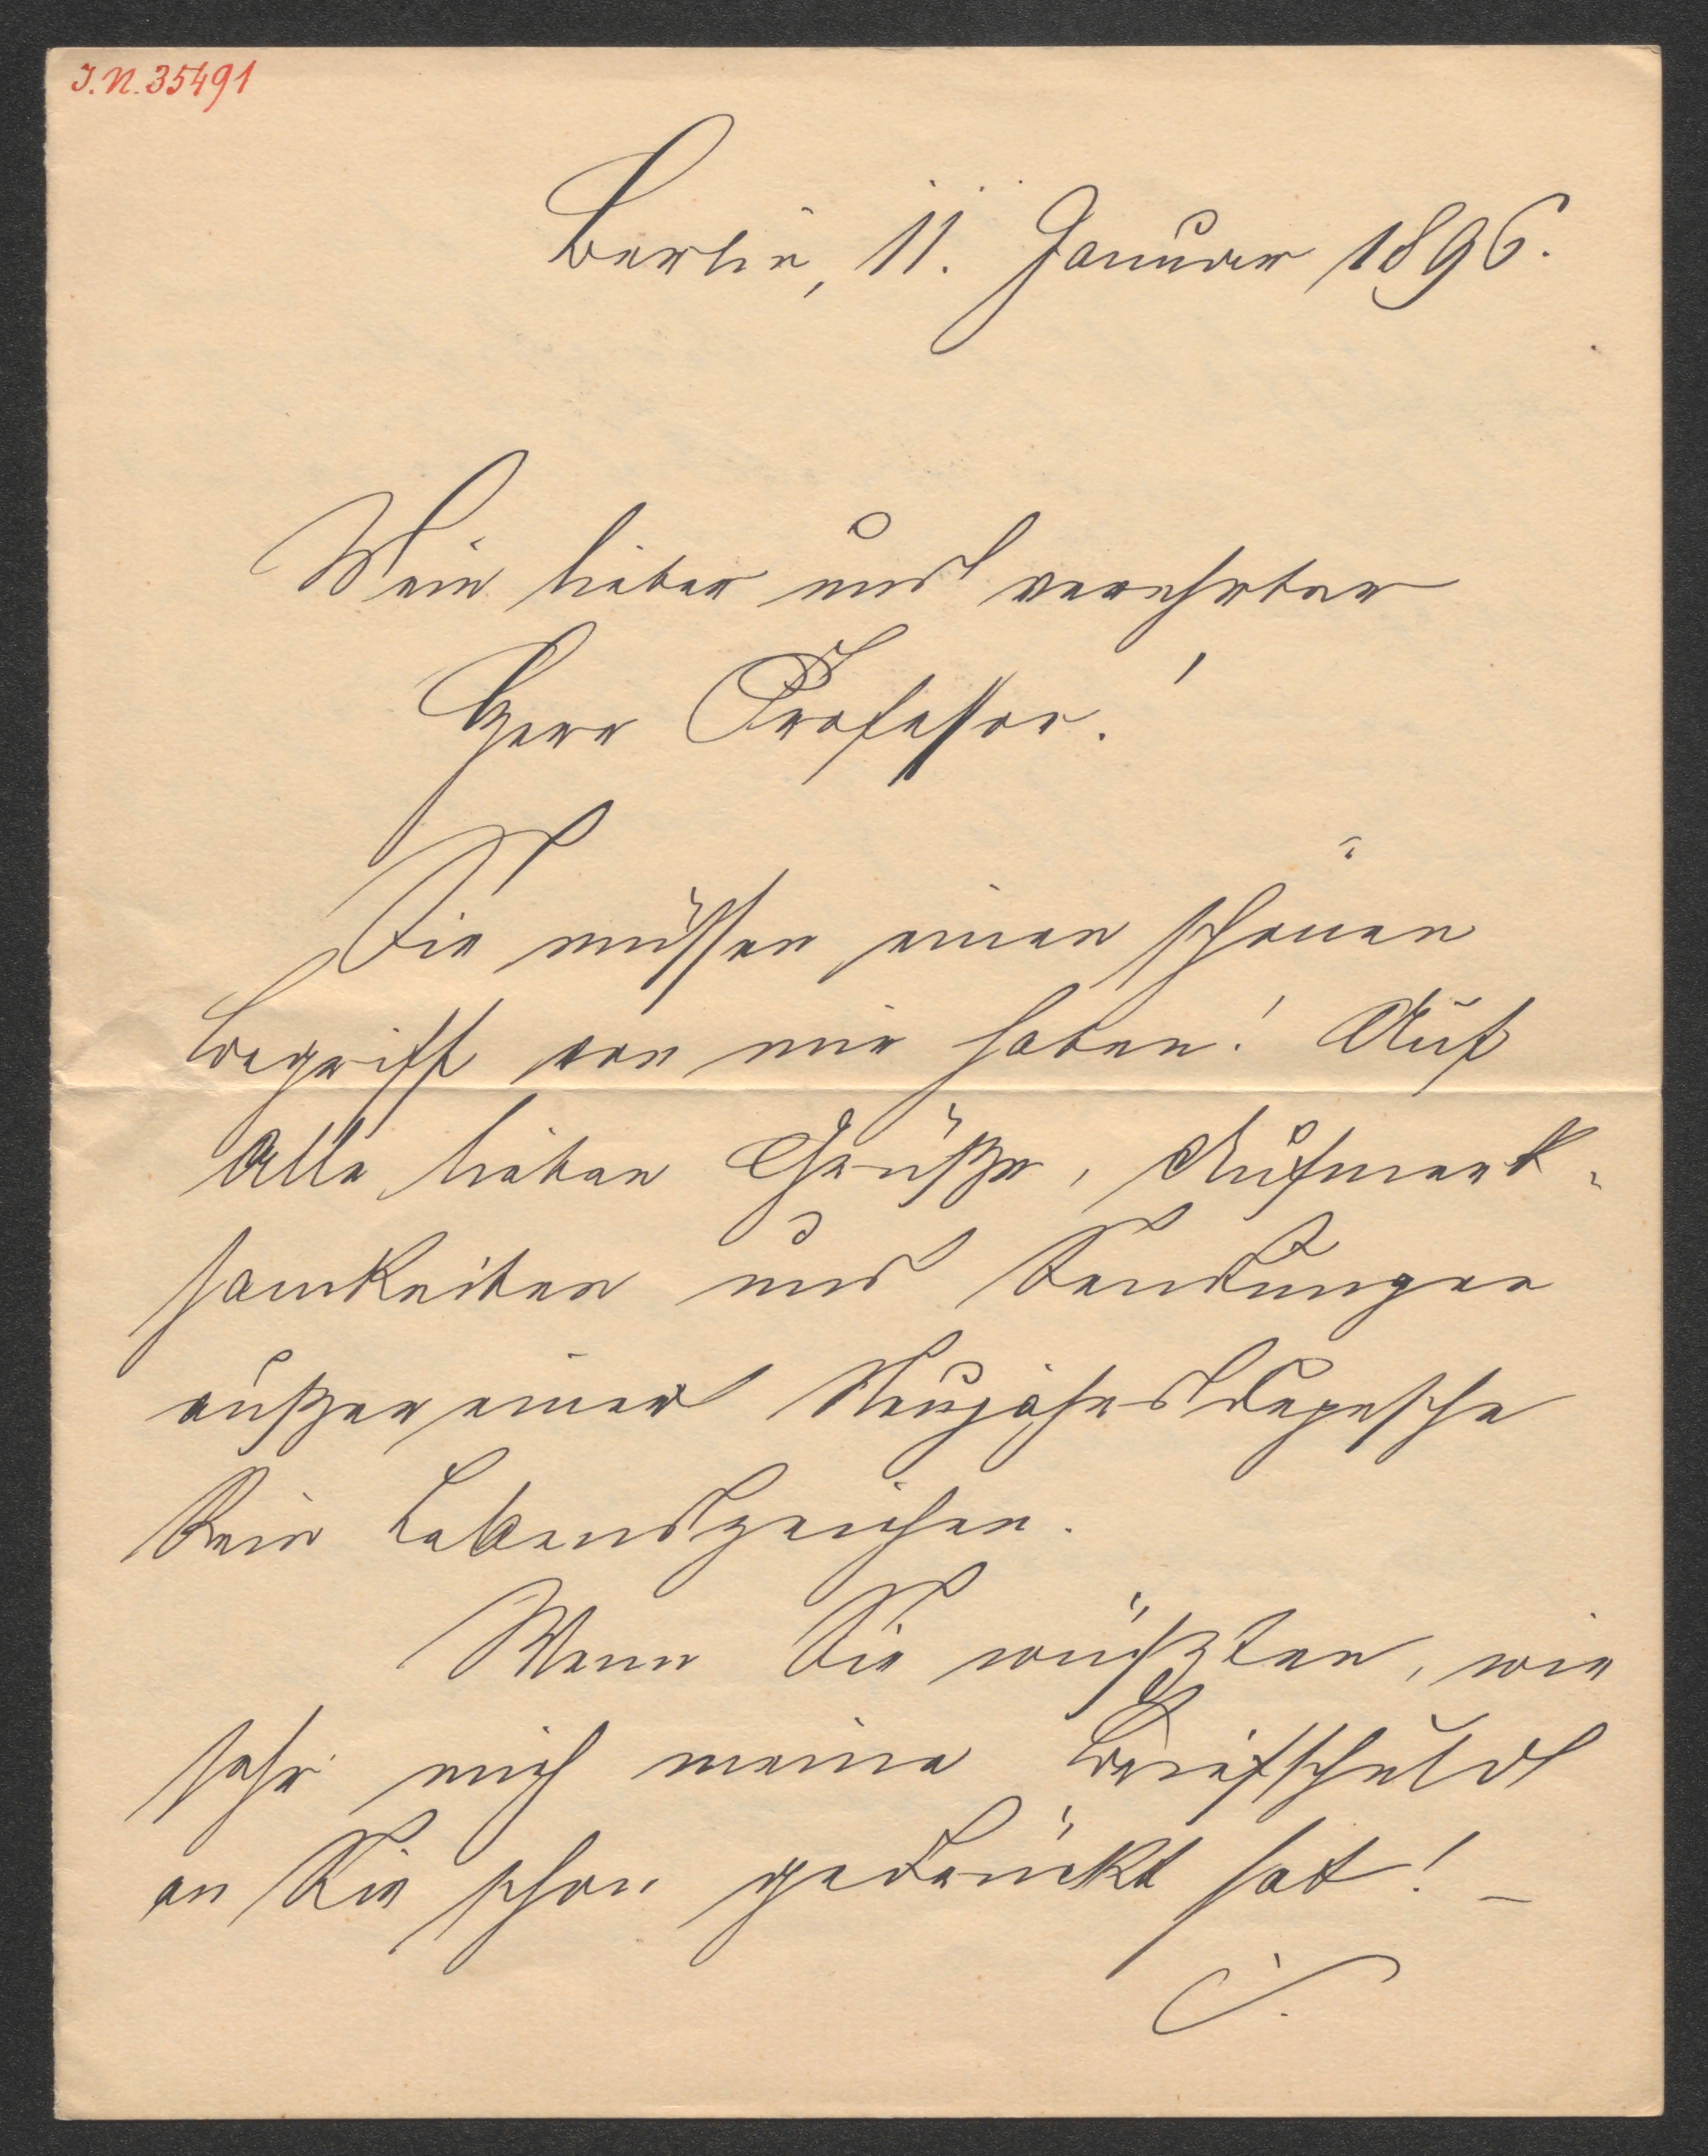 J.N. 35491
Berlin, 11. Januar 1896.
Mein lieber und verehrter
Herr Professor!
Sie müssen einen schönen
Begriff von mir haben! Auf
Alle lieben Grüße, Aufmerk-
samkeiten und Sendungen
außer einer Neujahrsdepesche
kein Lebenszeichen.
Wenn Sie wüßten, wie
sehr mich meine Briefschuld
an Sie schon gedrückt hat! –